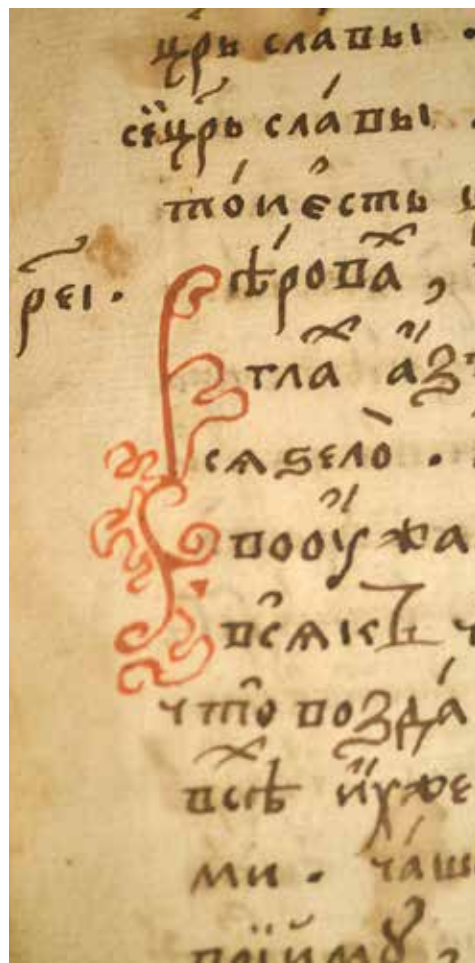 цр҃ь сла́вы .
се́ цр҃ь сла́вы .
то́и є́сть ц
рєі . Вѣ́роваⷯ ,
глаⷯ а́з
сѧ ѕело̀ .
вооу҆жа
всѧкъ ч
что возда́
всѣⷯ и҆̀хже
ми . ча́ш
прїимꙋ̀ ,